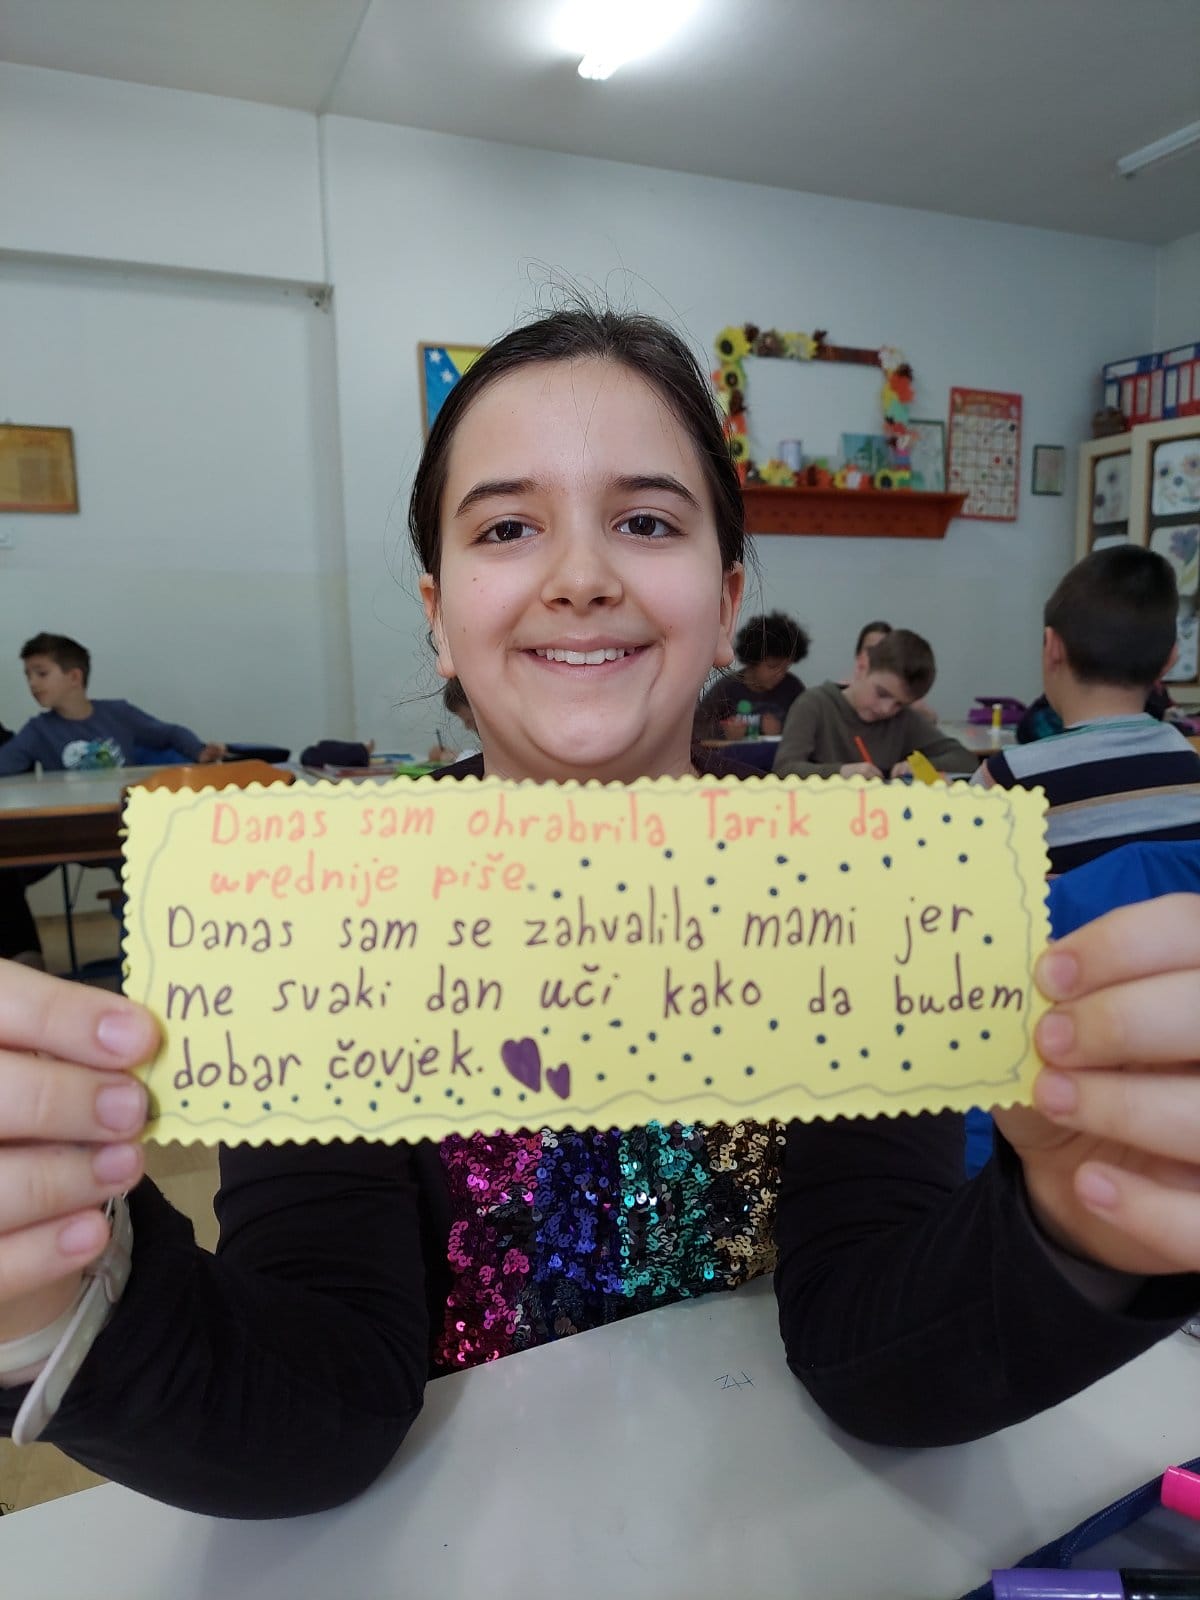 Danas sam ohrabrila Tarik da
urednije piše.
Danas sam se zahvalila mami jer
me svaki dan uči kako da budem
dobar čovjek.